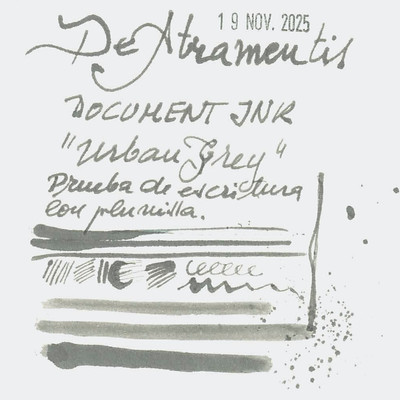 19 NOV. 2025
De Atramentis
DOCUMENT INK
"Urban Grey"
Prueba de escritura
con plumilla.